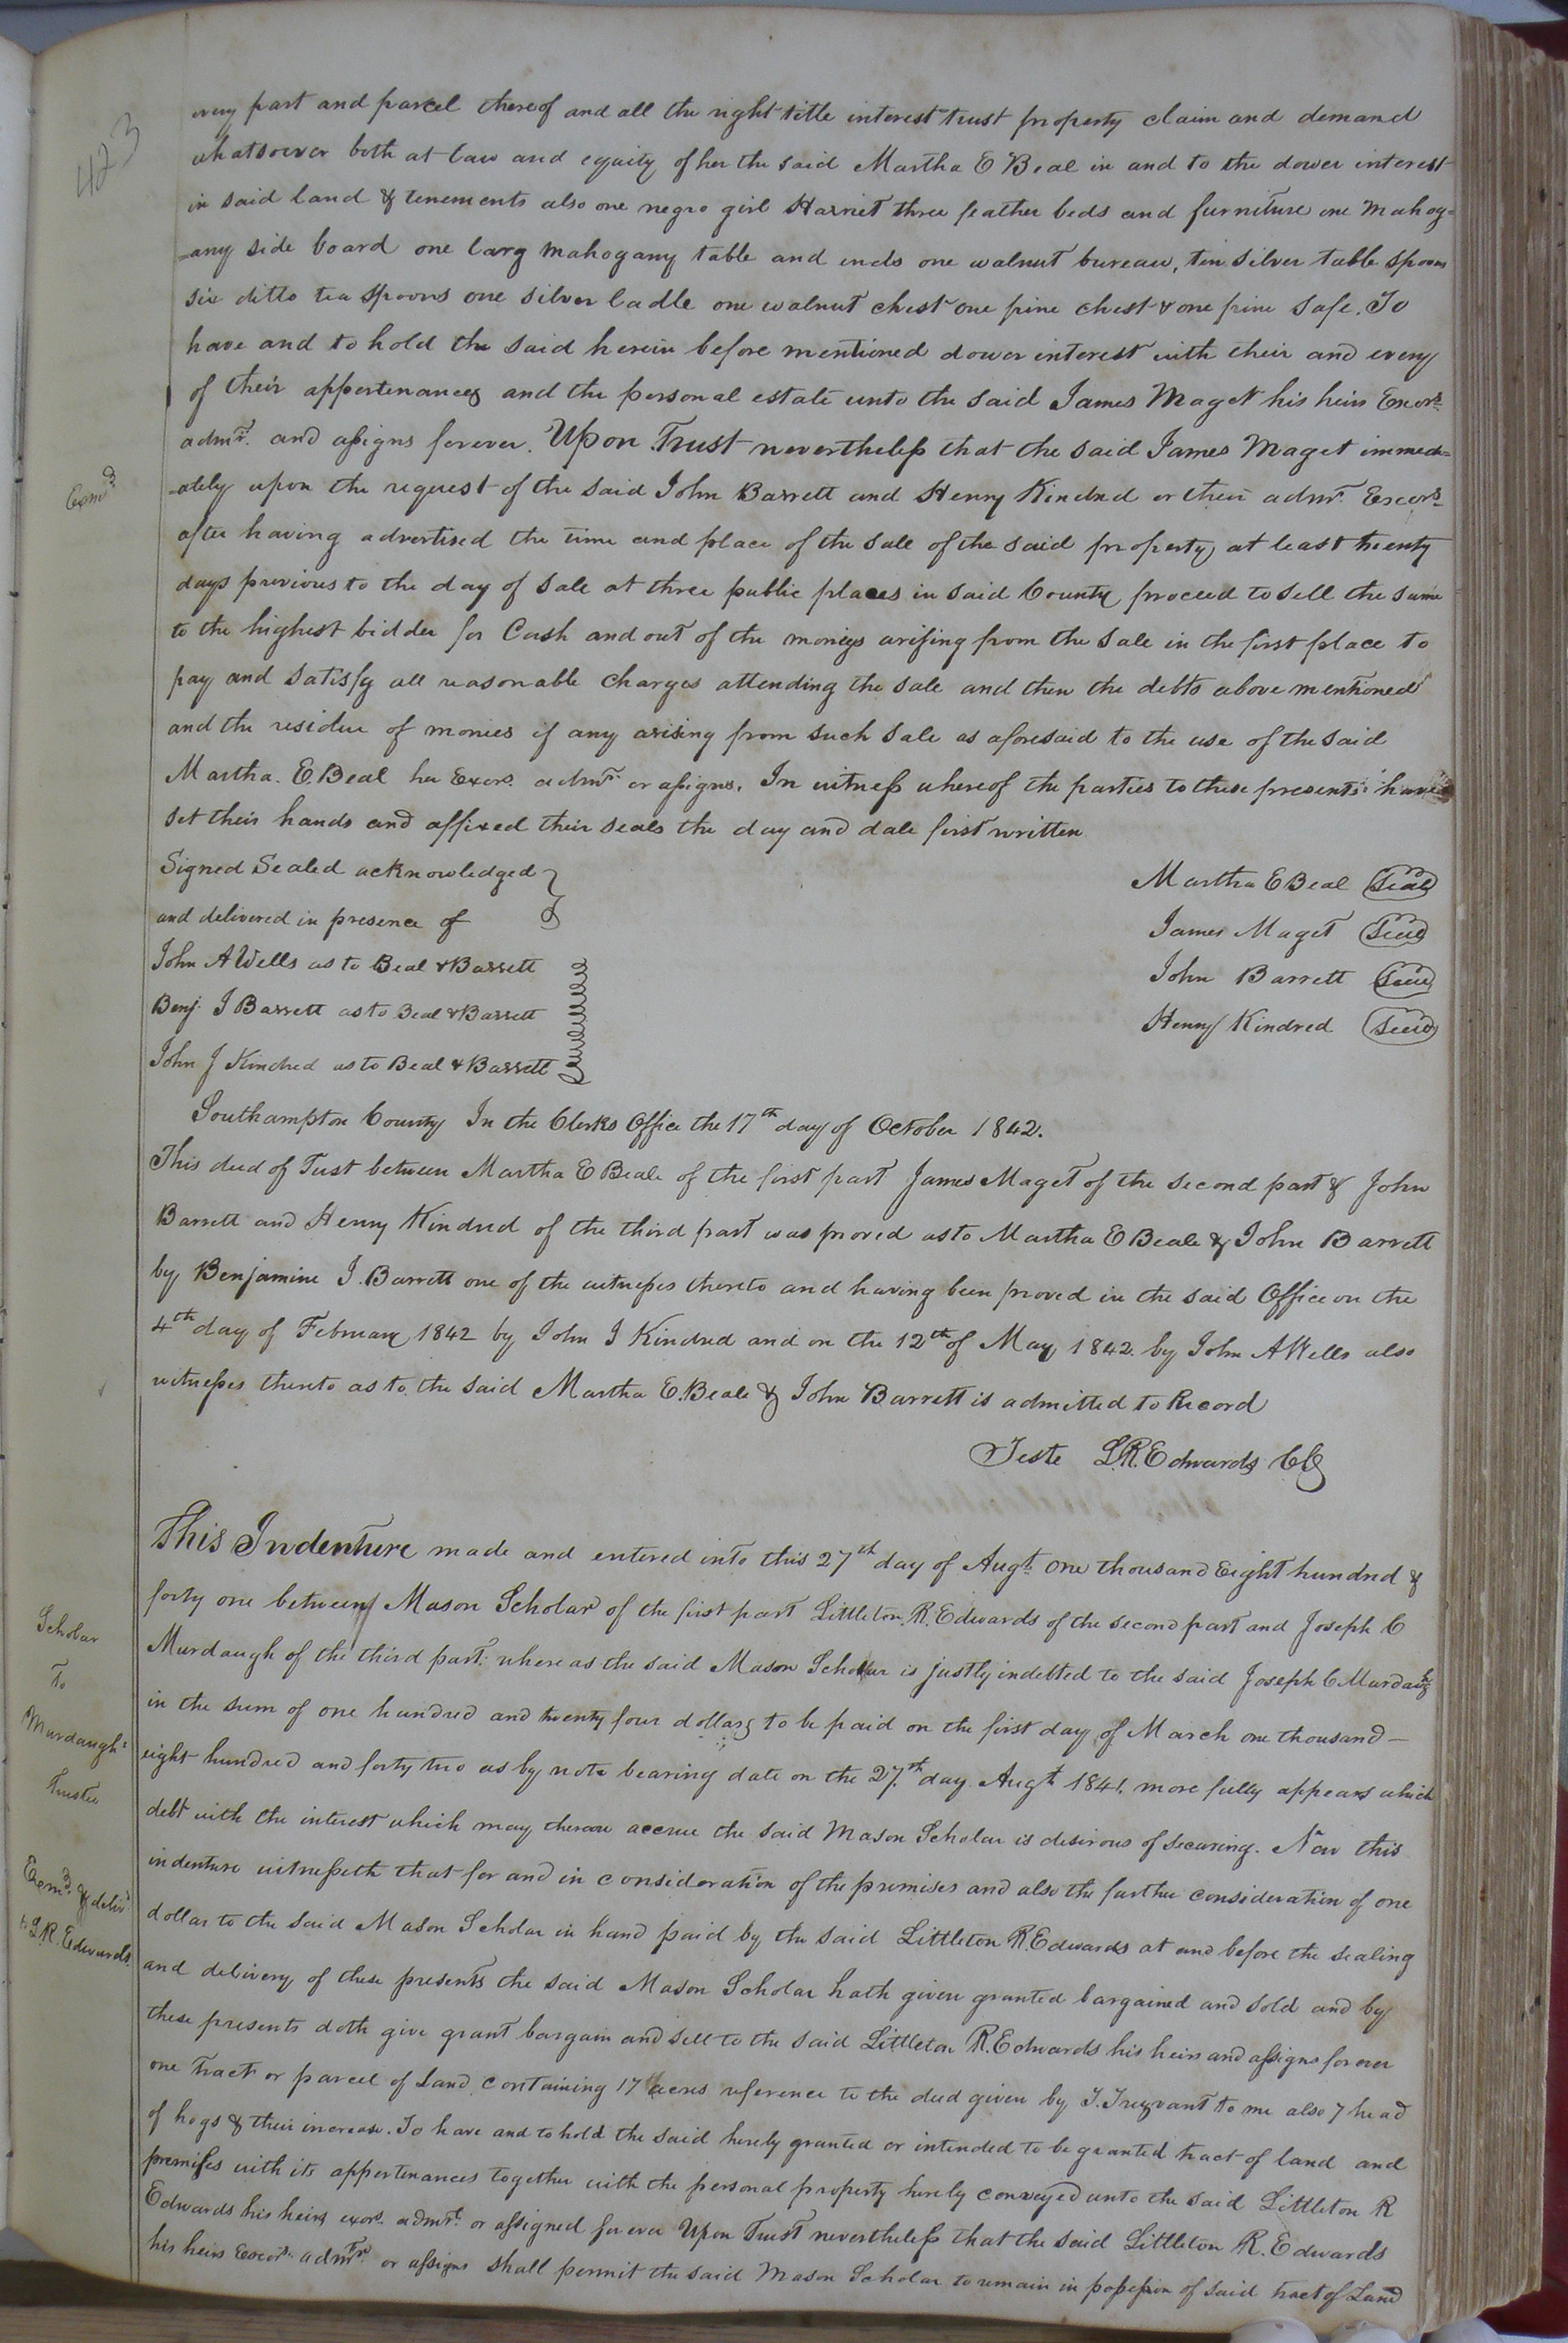 423
every part and parcel thereof and all the right title interest trust property claim and demand
whatsoever both at law and equity of her the said Martha E Beal in and to the dower interest
in said land & tenements also one negro girl Harriet three feather beds and furniture one Mahog=
=any side board one larg mahogany table and ends one walnut bureau, ten silver table spoons
six ditto tea spoons one silver ladle one walnut chest one pine chest & one pine safe. To
have and to hold the said herein before mentioned dower interest with their and every
of their appertenances and the personal estate unto the said James Maget his heirs Excors.
admr. and assigns forever. Upon Trust nevertheless that the said James Maget immedi=
=ately upon the request of the said John Barrett and Henry Kindred or their admr. Excors.
after having advertised the time and place of the sale of the said property at least twenty
days previous to the day of sale at three public places in said County proceed to sell the same
to the highest bidder for Cash and out of the monies arising from the sale in the first place to
pay and satisfy all reasonable charges attending the sale and then the debts above mentioned
and the residue of monies if any arising from such sale as aforesaid to the use of the said
Martha. E. Beal her Exors. admr. or assigns. In witness whereof the parties to these presents have
set their hands and affixed their seals the day and date first written
Exmd.
Signed Sealed acknowledged
and delivered in presence of
John A Wells as to Beal & Barrett
Benj. J Barrett as to Beal & Barrett
John J Kindred as to Beal & Barrett
Martha E Beal Seal
James Maget Seal
John Barrett Seal
Henry Kindred Seal
Southampton County In the Clerks Office the 17th day of October 1842.
This deed of Tust between Martha E Beale of the first part James Maget of the second part & John
Barrett and Henry Kindred of the third part was proved as to Martha E Beale & John Barrett
by Benjamine J. Barrett one of the witnesses thereto and having been proved in the said Office on the
4th day of February 1842 by John J Kindred and on the 12th of May 1842. by John A Wells also
witnesses thereto as to the said Martha E. Beale & John Barrett is admitted to Record
Teste L. R. Edwards CC
Scholar
To
Murdaugh's
Trustee
Exmd. & delivd.
to L. R. Edwards.
This Indenture made and entered into this 27th day of Augt. One thousand Eight hundred &
forty one between Mason Scholar of the first part Littleton. R. Edwards of the second part and Joseph C
Murdaugh of the third part: whereas the said Mason Scholar is justly indebted to the said Joseph C Murdaugh
in the sum of one hundred and twenty four dollars to be paid on the first day of March one thousand
eight hundred and forty two as by note bearing date on the 27th day Augt. 1841. more fully appears which
debt with the interest which may thereon accrue the said Mason Scholar is desirous of securing. Now this
indenture witnesseth that for and in consideration of the premises and also the further consideration of one
dollar to the said Mason Scholar in hand paid by the said Littleton R. Edwards at and before the sealing
and delivery of these presents the said Mason Scholar hath given granted bargained and sold and by
these presents doth give grant bargain and sell to the said Littleton R. Edwards his heirs and assigns forever
one tract or parcel of Land containing 17 acres reference to the deed given by J. Trezvant to me also 7 head
of hogs & their increase. To have and to hold the said hereby granted or intended to be granted tract of land and
premises with its appertenances together with the personal property hereby conveyed unto the said Littleton R
Edwards his heirs exors. admr. or assigned forever Upon Trust nevertheless that the said Littleton R. Edwards
his heirs Excors. admrs. or assigns shall permit the said Mason Scholar to remain in possession of said tract of Land